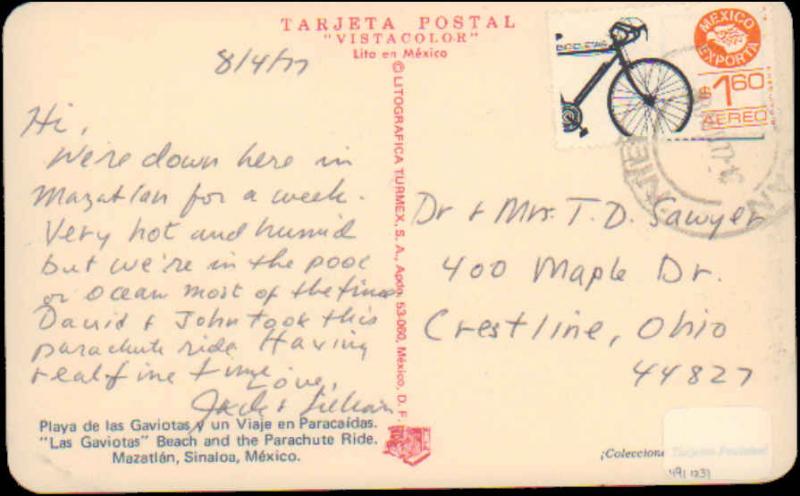 TARJETA POSTAL
"VISTACOLOR"
Lito en México
8/4/77
Hi,
We're down here in
Mazatlan for a week.
Very hot and humid
but we're in the pool
or ocean most of the time
David & John took this
parachute ride. Having
real fine time.
Love,
Jack & Lillian
Playa de las Gaviotas y un Viaje en Paracaídas.
"Las Gaviotas" Beach and the Parachute Ride.
Mazatlán, Sinaloa, México.
© LITOGRAFICA TURMEX, S. A., Apdo. 53-060, México, D. F.
BICICLETAS
MEXICO
EXPORTA
$1.60
AEREO
Dr & Mrs. T. D. Sawyer
400 Maple Dr.
Crestline, Ohio
44827
¡Colecciona Tarjetas Postales!